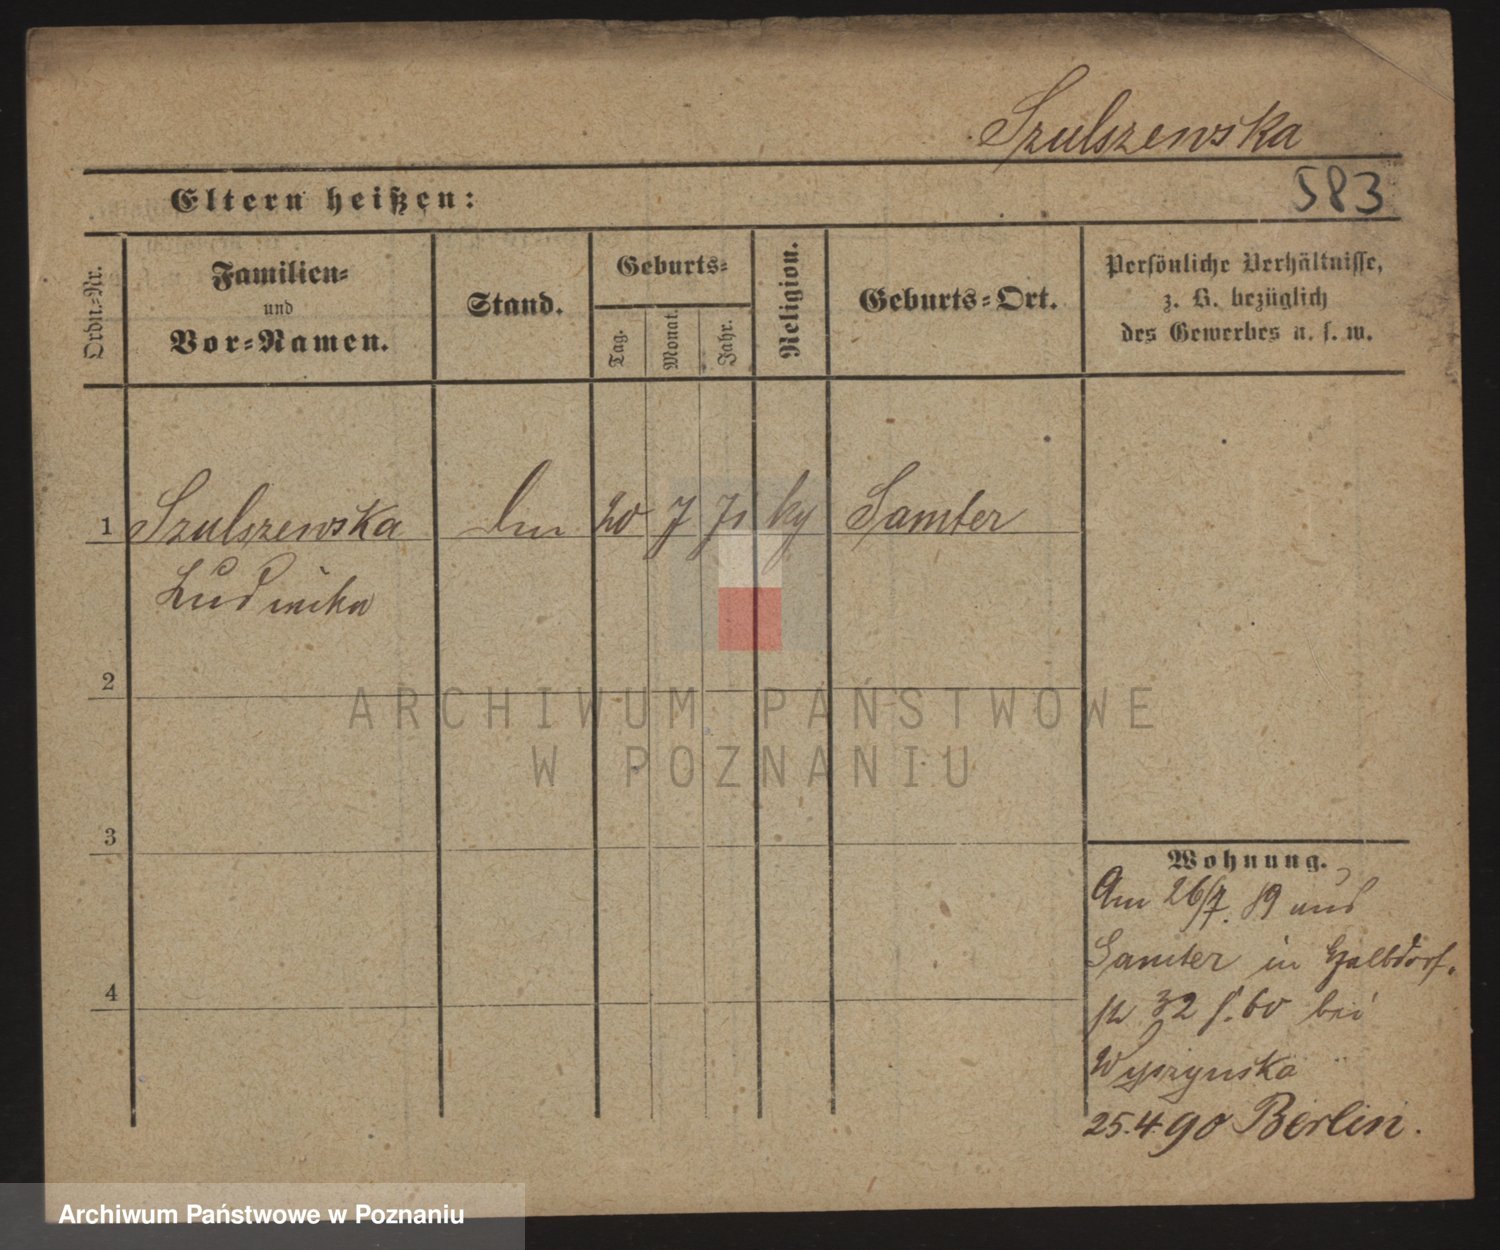 Szulszewska
583
Eltern heißen:
Ordn.-Nr.
Familien-
und
Vor-Namen.
Stand.
Geburts-
Tag.
Monat.
Jahr.
Religion.
Geburts-Ort.
Persönliche Verhältnisse,
z. B. bezüglich
des Gewerbes u. s. w.
1 Szulszewska 20 7 71 Samter
Ludwika
2
3
4
Wohnung.
Am 26/7. 89 aus
Samter in Halbdorf-
str 32 bei
Wyszynska
25.4.90 Berlin.
ARCHIWUM PAŃSTWOWE
W POZNANIU
Archiwum Państwowe w Poznaniu